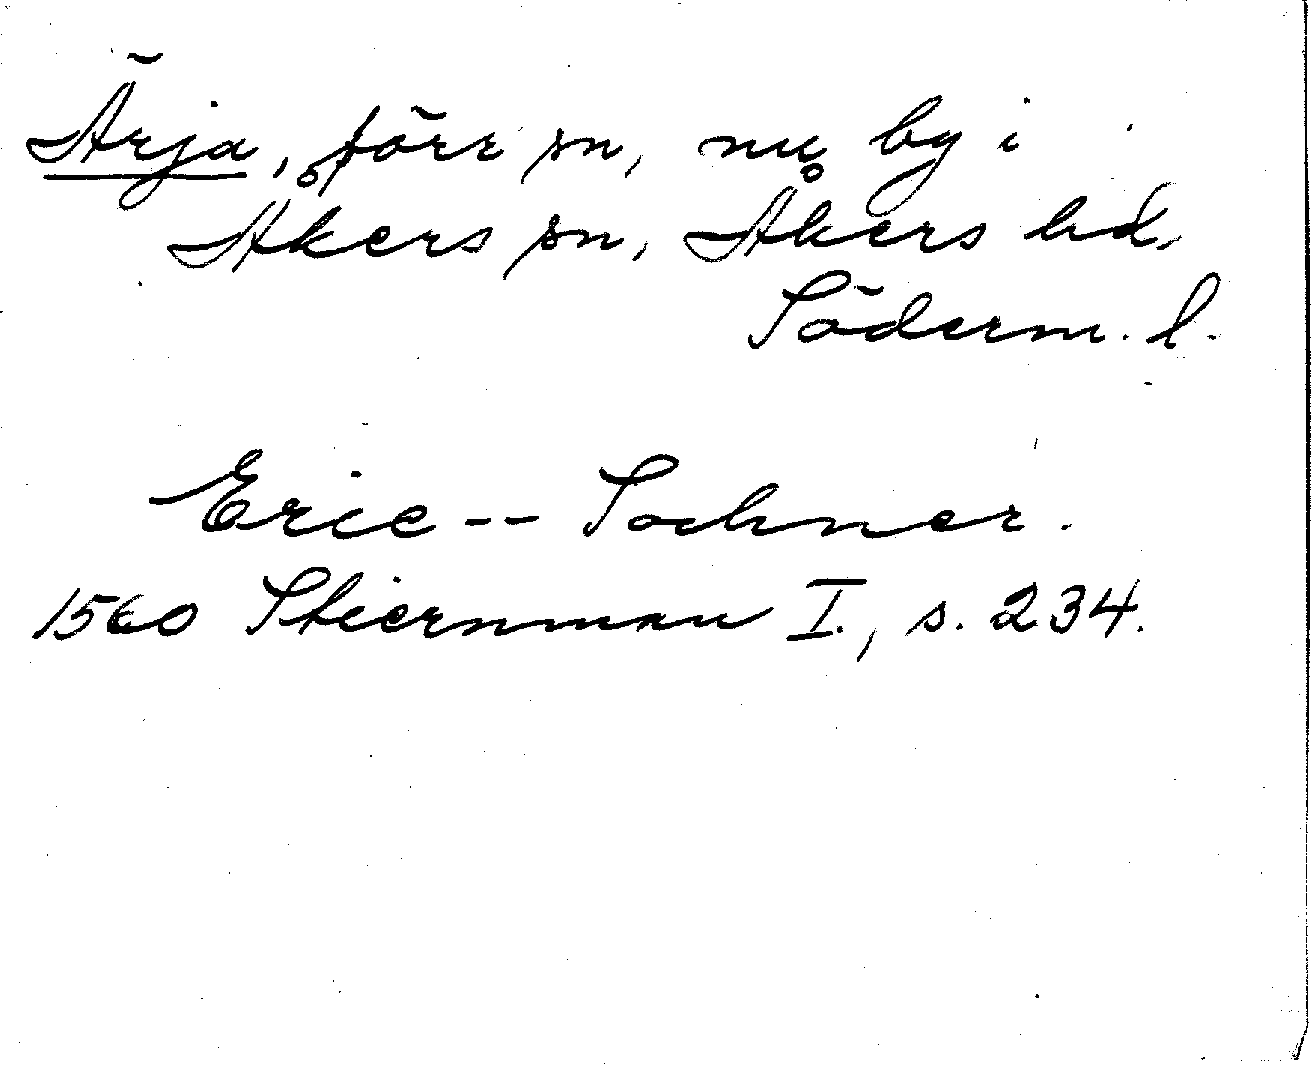 Ärja, förr sn, nu by i
Åkers sn, Åkers hd,
Söderm. l.
Eric -- Sochner.
1560 Stiernman I., s. 234.